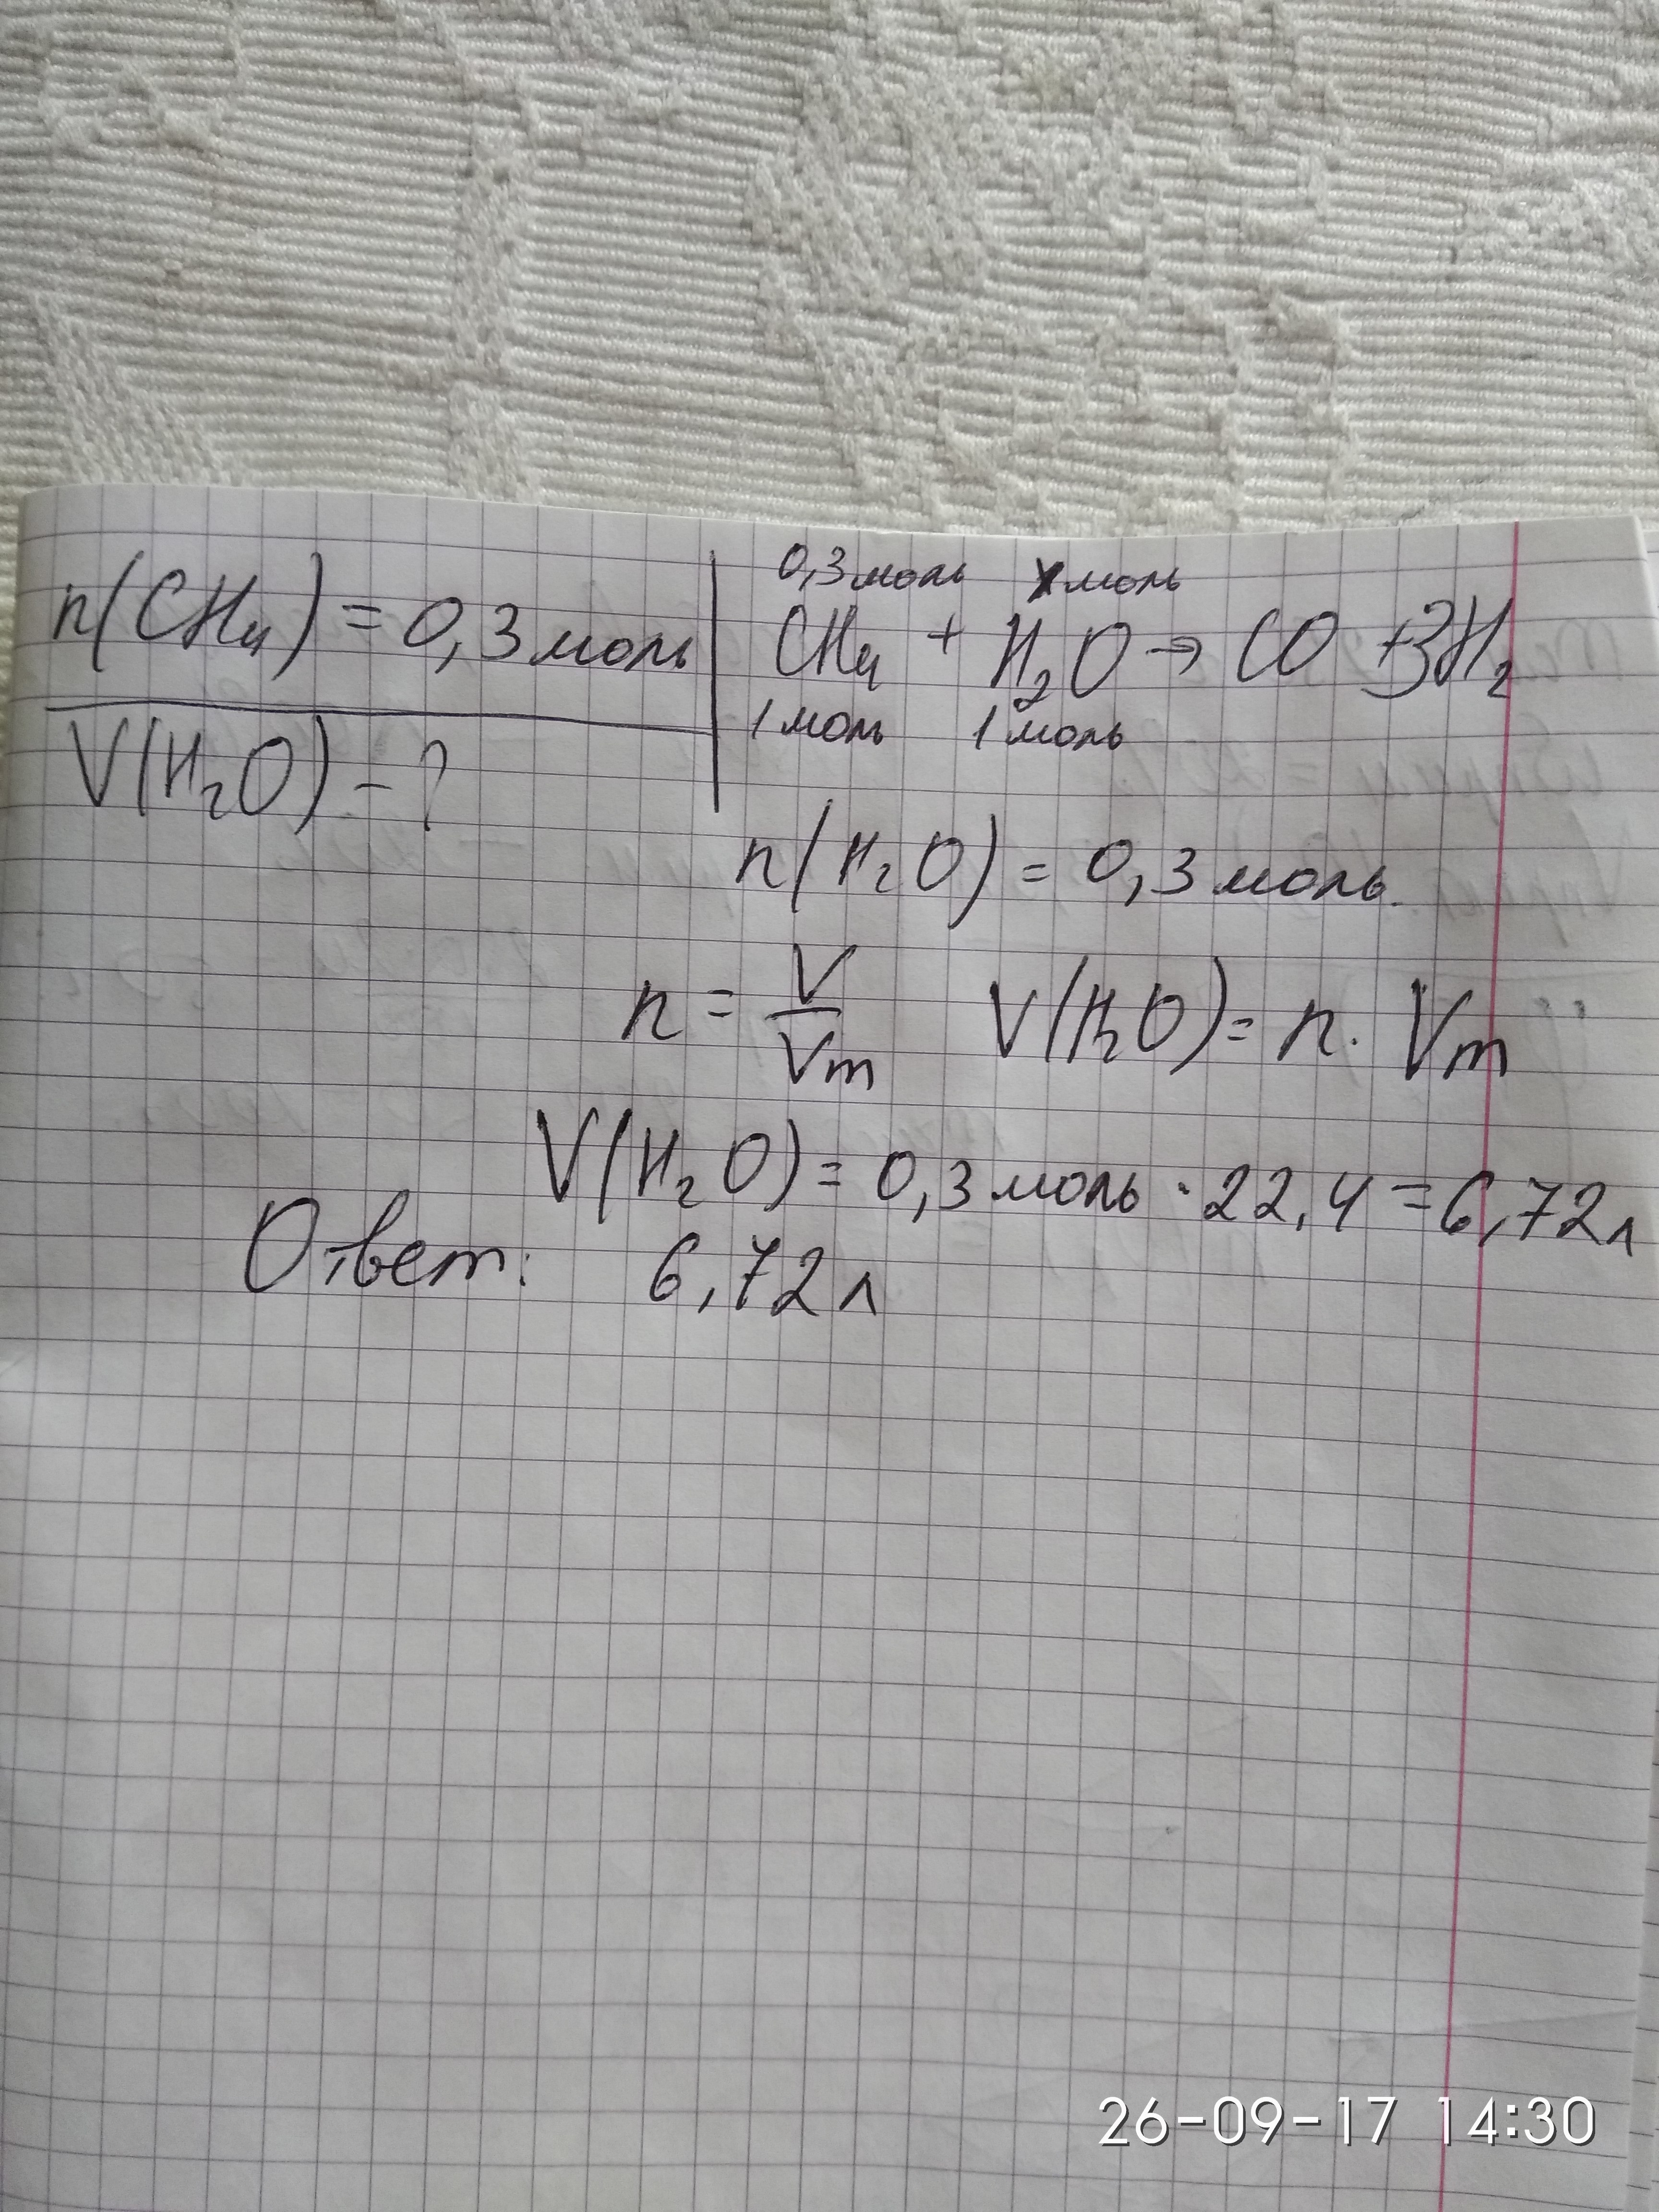 n(CH₄) = 0,3 моль
V(H₂O) - ?
0,3 моль x моль
CH₄ + H₂O → CO + 3H₂
1 моль 1 моль
n(H₂O) = 0,3 моль.
n = V/Vm V(H₂O) = n · Vm
V(H₂O) = 0,3 моль · 22,4 = 6,72 л
Ответ: 6,72 л
26-09-17 14:30